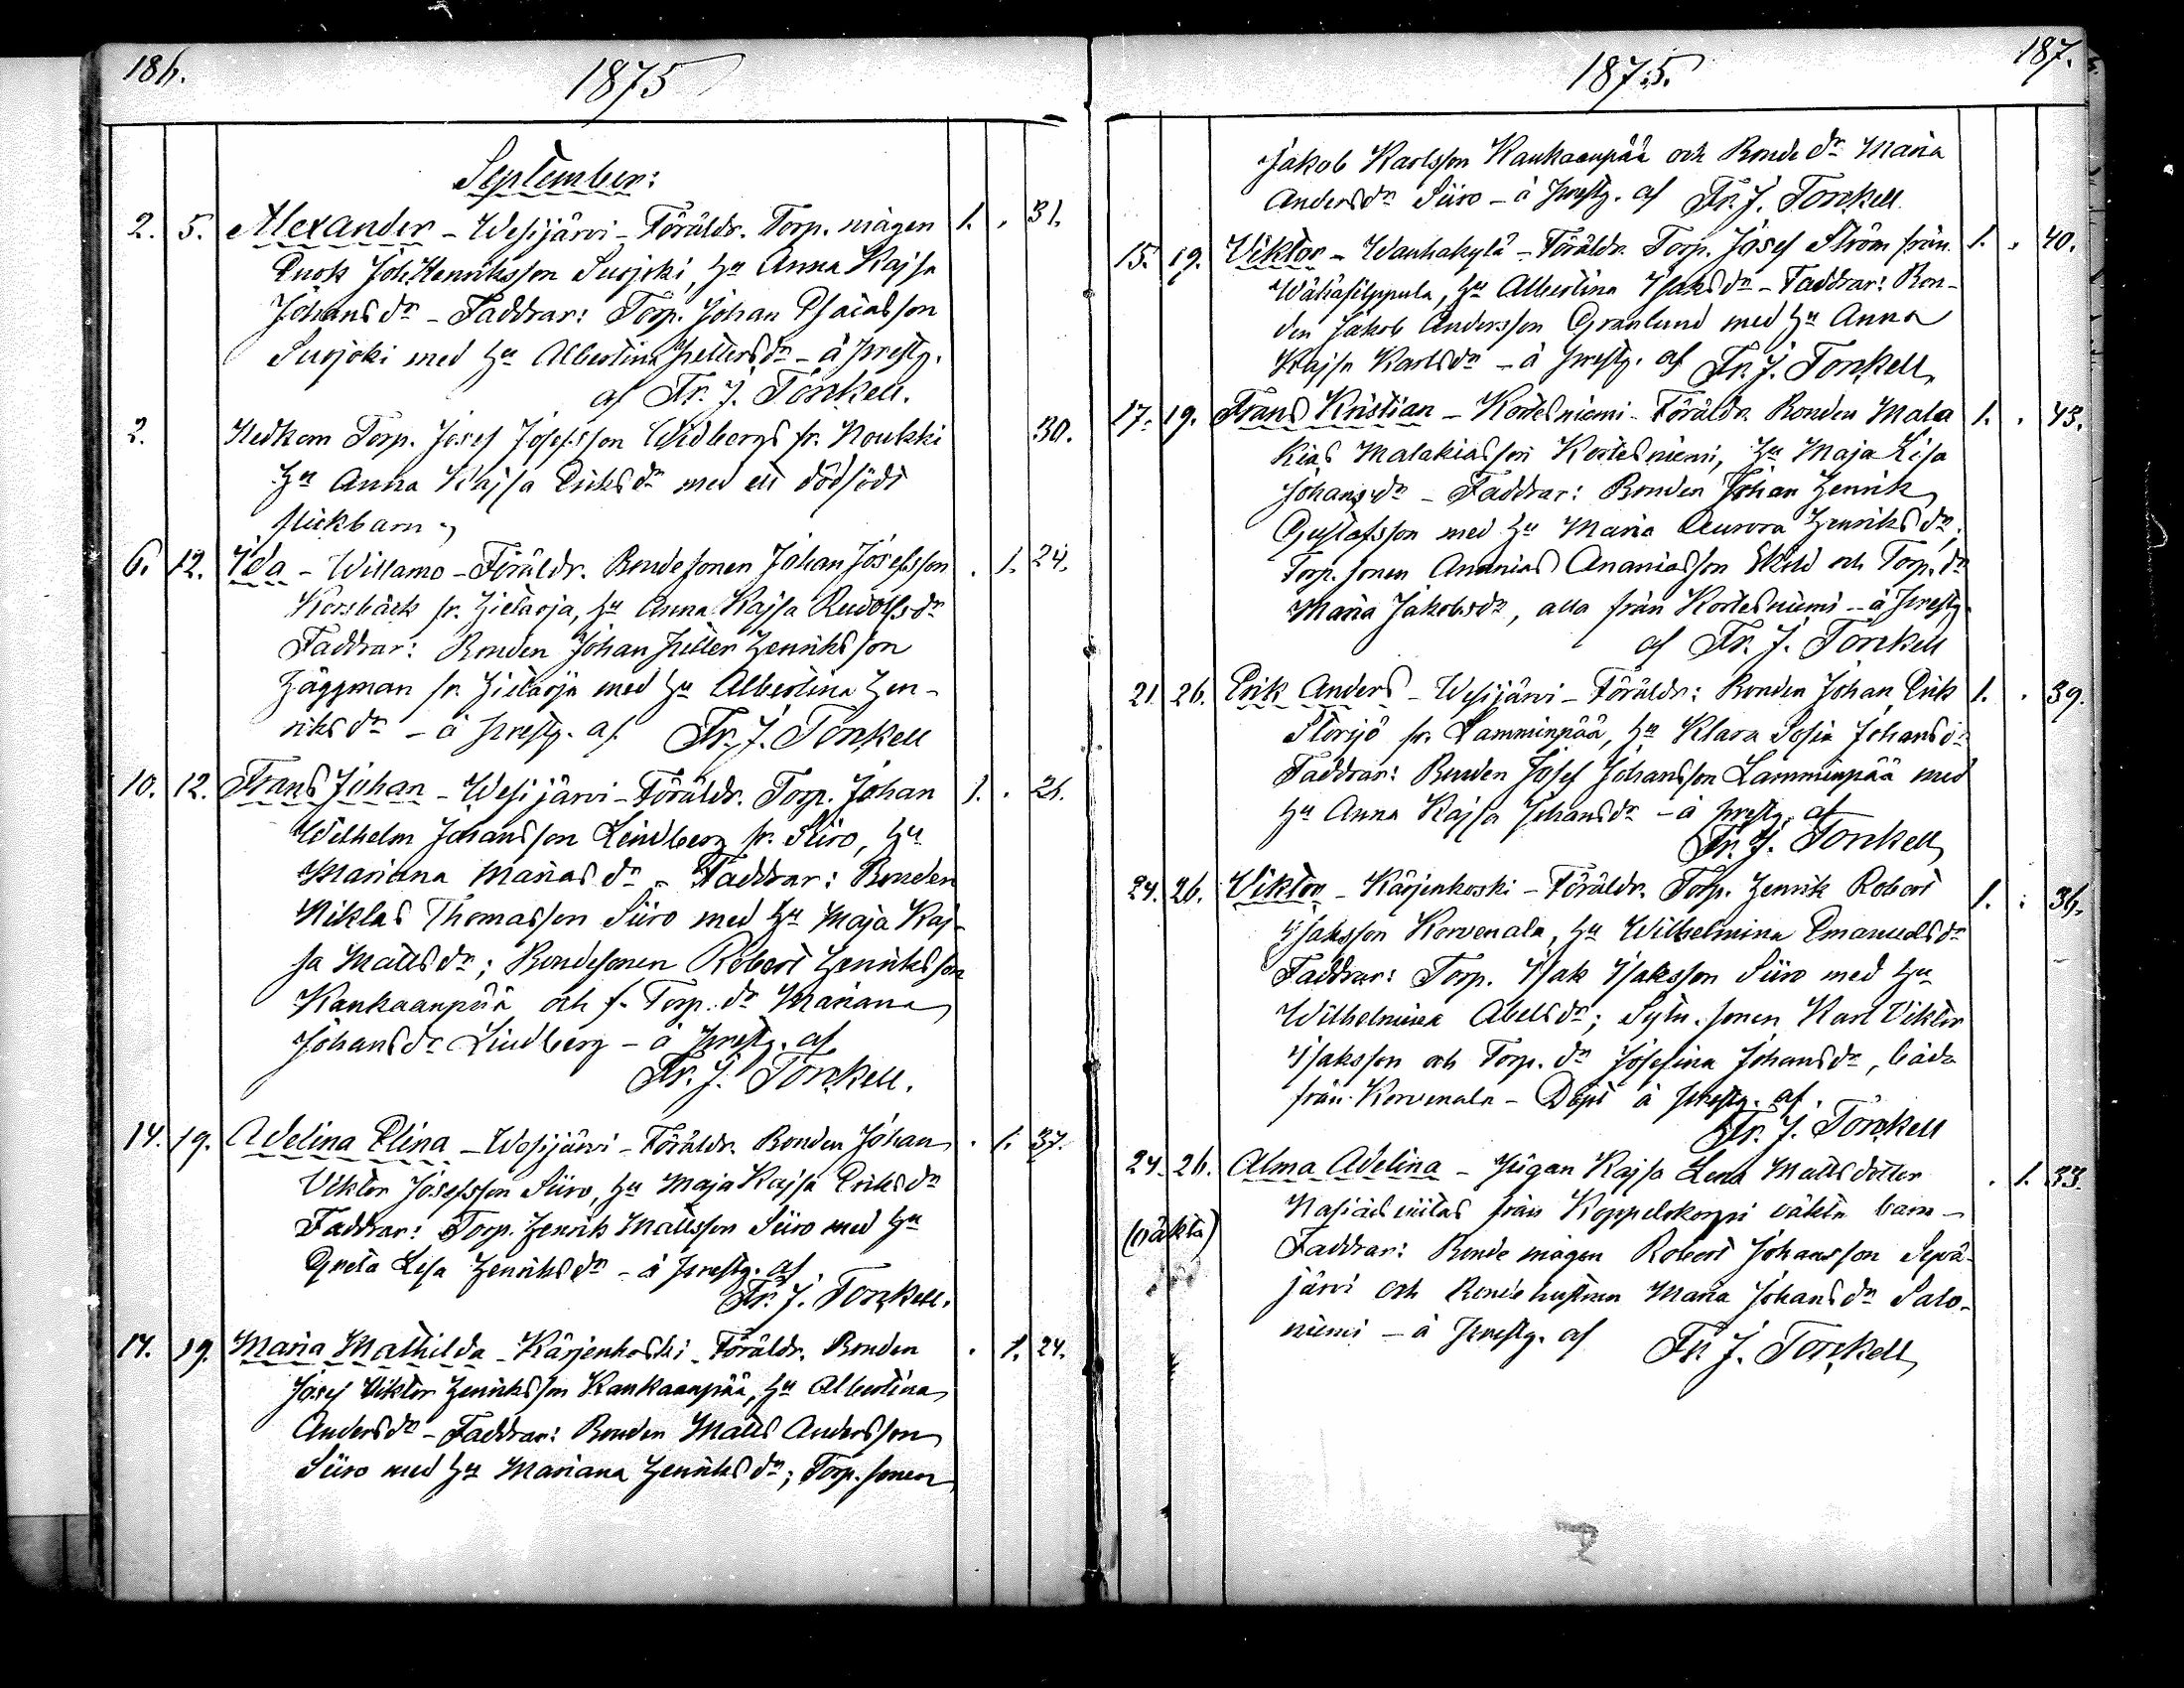 186.
1875
September:
2. 5. Alexander - Wesijärvi - Föräldr. Torp. mågen 1. . 31.
Enok Joh. Henriksson Suojoki, Hu Anna Kajsa
Johansdr - Faddrar: Torp. Johan Esaiasson
Suojoki med Hu Albertina Pettersdr - å prestg.
af Fr. J. Torckell.
2. Nedkom Torp. Josef Josefsson Widbergs fr. Noukki 30.
Hu Anna Kajsa Eriksdr med ett dödfödt
flickbarn
6. 12. Ida - Willamo - Föräldr. Bondesonen Johan Josefsson . 1. 24.
Korsbäck fr. Hietaoja, Hu Anna Kajsa Rudolfsdr
Faddrar: Bonden Johan Petter Henriksson
Häggman fr. Hietaoja med Hu Albertina Hen-
riksdr - å prestg. af Fr. J. Torckell
10. 12. Frans Johan - Wesijärvi - Föräldr. Torp. Johan 1. . 26.
Wilhelm Johansson Lindberg fr. Siiro, Hu
Mariana Mariasdr - Faddrar: Bonden
Niklas Thomasson Siiro med Hu Maja Kaj-
sa Mattsdr; Bondesonen Robert Henriksson
Kankaanpää och f. Torp. dr Mariana
Johansdr Lindberg - å prestg. af
Fr. J. Torckell.
14. 19. Adelina Elina - Wesijärvi - Föräldr. Bonden Johan . 1. 37.
Viktor Josefsson Siiro, Hu Maja Kajsa Eriksdr
Faddrar: Torp. Henrik Mattsson Siiro med Hu
Greta Lisa Henriksdr - å prestg. af
Fr. J. Torckell.
14. 19. Maria Mathilda - Kärjenkoski - Föräldr. Bonden . 1. 24.
Josef Viktor Henriksson Kankaanpää, Hu Albertina
Andersdr - Faddrar: Bonden Matts Andersson
Siiro med Hu Mariana Henriksdr; Torp. sonen
187.
1875.
Jakob Karlsson Kankaanpää och Bonde dr Maria
Andersdr Siiro - å prestg. af Fr. J. Torckell
15. 19. Viktor - Wanhakylä - Föräldr. Torp. Josef Ström från 1. . 40.
Wähäfilppula, Hu Albertina Isaksdr - Faddrar: Bon-
den Jakob Andersson Granlund med Hu Anna
Kajsa Karlsdr - å prestg. af Fr. J. Torckell
17. 19. Frans Kristian - Kortesniemi - Föräldr. Bonden Mala 1. . 43.
kias Malakiasson Kortesniemi, Hu Maja Lisa
Johansdr - Faddrar: Bonden Johan Henrik
Gustafsson med Hu Maria Aurora Henriksdr;
Torp. sonen Ananias Ananiasson Sköld och Torp. dr
Maria Jakobsdr, alla från Kortesniemi - å prestg
af Fr. J. Torckell
21. 26. Erik Anders - Wesijärvi - Föräldr: Bonden Johan Erik 1. . 39.
Storsjö fr. Lamminpää, Hu Klara Sofia Johansdr
Faddrar: Bonden Josef Johansson Lamminpää med
Hu Anna Kajsa Johansdr - å prestg. af
Fr. J. Torckell
24. 26. Viktor - Kärjenkoski - Föräldr. Torp. Henrik Robert 1. . 36.
Isaksson Korvenala, Hu Wilhelmina Emanuelsdr
Faddrar: Torp. Isak Isaksson Siiro med Hu
Wilhelmina Abelsdr; Sytn. sonen Karl Viktor
Isaksson och Torp. dr Josefina Johansdr, båda
från Korvenala - Döpt å prestg. af
Fr. J. Torckell
24. 26. Alma Adelina - Pigan Kajsa Lena Mattsdotter . 1. 33.
från Koppelokorpi oäkta barn -
(oäkta)
Faddrar: Bonde mågen Robert Johansson Sepä-
järvi och Bonde hustrun Maria Johansdr Salo-
niemi - å prestg. af Fr. J. Torckell